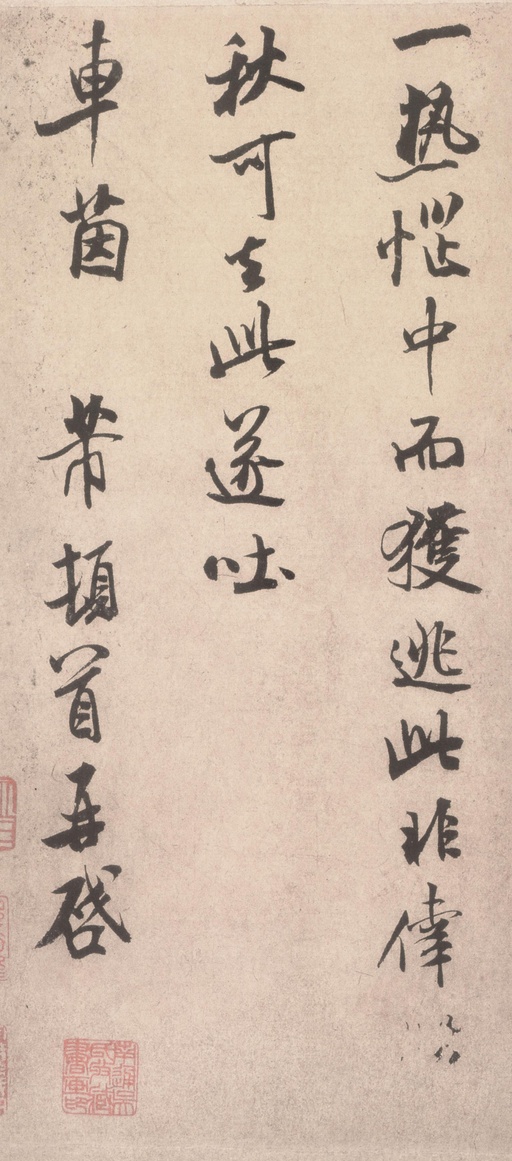 一热惱中而獲逃此非倖
秋可去此遂吐
車茵 芾頓首再啓